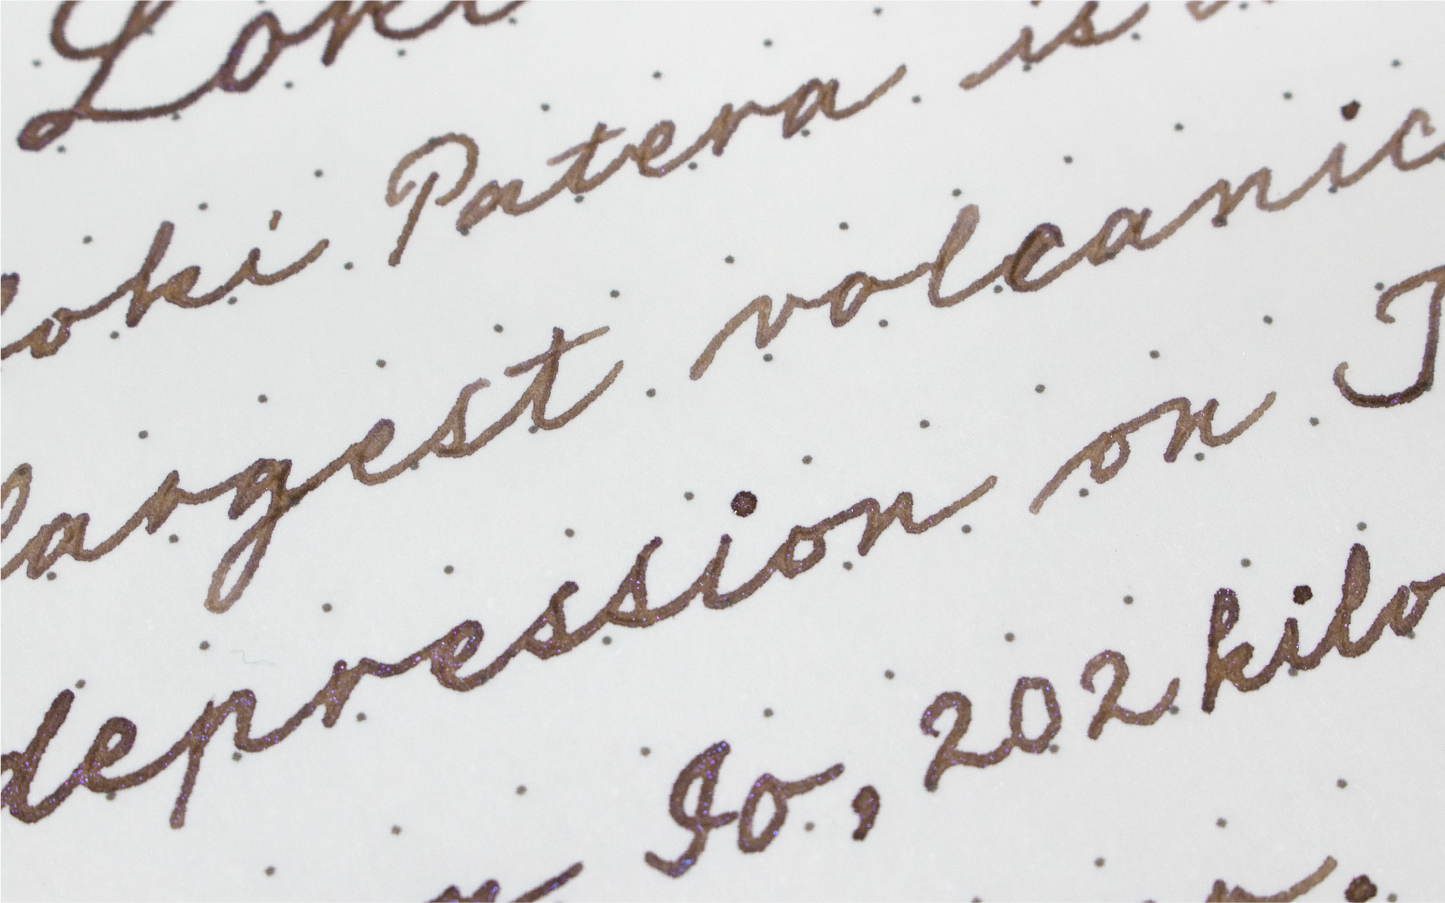 Loki
oki Patera is
largest volcanic
depression on J
Io, 202 kilo